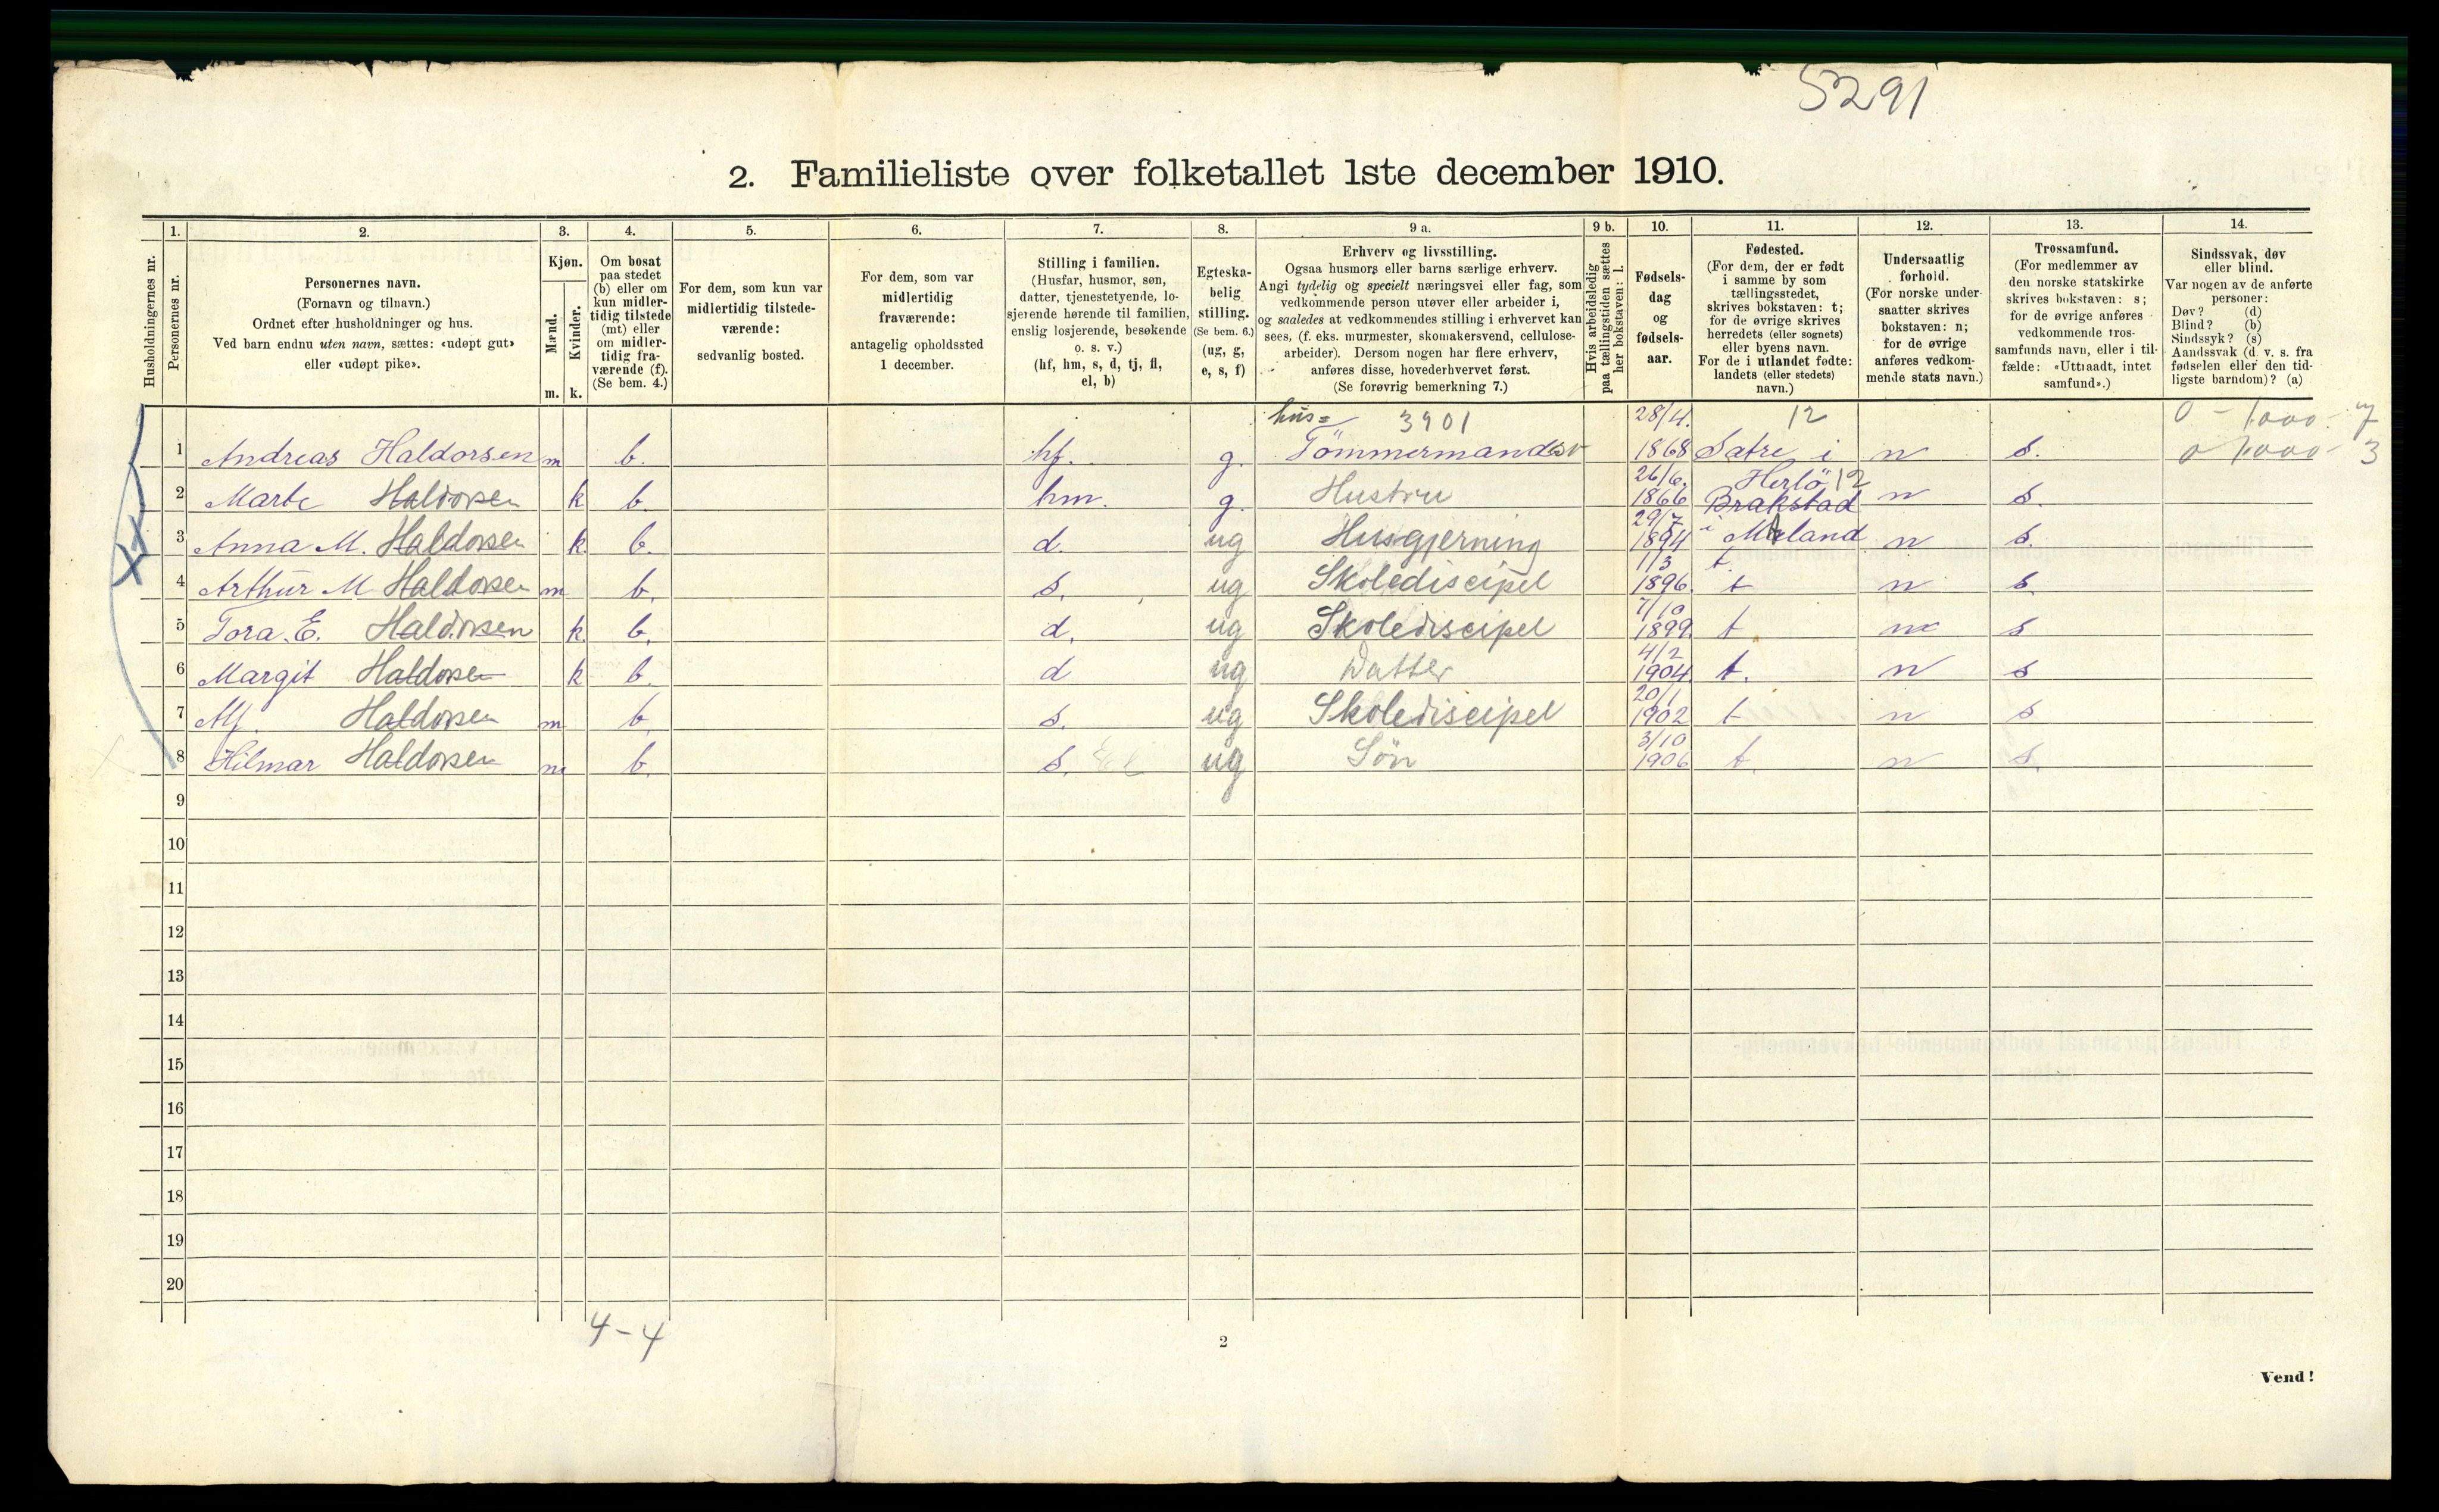 5291
2. Familieliste over folketallet 1ste december 1910.
Husholdningernes nr.
1. Personernes nr.
2. Personernes navn.
(Fornavn og tilnavn.)
Ordnet efter husholdninger og hus.
Ved barn endnu uten navn, sættes: «udøpt gut»
eller «udøpt pike».
3. Kjøn.
Mænd. m.
Kvinder. k.
4. Om bosat
paa stedet
(b) eller om
kun midler-
tidig tilstede
(mt) eller
om midler-
tidig fra-
værende (f).
(Se bem. 4.)
5. For dem, som kun var
midlertidig tilstede-
værende:
sedvanlig bosted.
6. For dem, som var
midlertidig
fraværende:
antagelig opholdssted
1 december.
7. Stilling i familien.
(Husfar, husmor, søn,
datter, tjenestetyende, lo-
sjerende hørende til familien,
enslig losjerende, besøkende
o. s. v.)
(hf, hm, s, d, tj, fl,
el, b)
8. Egteska-
belig
stilling.
(Se bem. 6.)
(ug, g,
e, s, f)
9 a. Erhverv og livsstilling.
Ogsaa husmors eller barns særlige erhverv.
Angi tydelig og specielt næringsvei eller fag, som
vedkommende person utøver eller arbeider i,
og saaledes at vedkommendes stilling i erhvervet kan
sees, (f. eks. murmester, skomakersvend, cellulose-
arbeider). Dersom nogen har flere erhverv,
anføres disse, hovederhvervet først.
(Se forøvrig bemerkning 7.)
9 b. Hvis arbeidsledig
paa tællingstiden sættes
her bokstaven: l.
10. Fødsels-
dag
og
fødsels-
aar.
11. Fødested.
(For dem, der er født
i samme by som
tællingsstedet,
skrives bokstaven: t;
for de øvrige skrives
herredets (eller sognets)
eller byens navn.
For de i utlandet fødte:
landets (eller stedets)
navn.)
12. Undersaatlig
forhold.
(For norske under-
saatter skrives
bokstaven: n;
for de øvrige
anføres vedkom-
mende stats navn.)
13. Trossamfund.
(For medlemmer av
den norske statskirke
skrives bokstaven: s;
for de øvrige anføres
vedkommende tros-
samfunds navn, eller i til-
fælde: «Uttraadt, intet
samfund».)
14. Sindssvak, døv
eller blind.
Var nogen av de anførte
personer:
Døv? (d)
Blind? (b)
Sindssyk? (s)
Aandssvak (d. v. s. fra
fødselen eller den tid-
ligste barndom)? (a)
hus= 3901 28/4. 12 0 - 1000 - 7
1 Andreas Haldorsen m b. hf. g. Tömmermand 1868 Satre i n s. 0 1000 - 3
26/6. Herlö 12
2 Marte Haldorsen k b. hm. g. Hustru 1866 Brakstad n s.
29/7 i
3 Anna M. Haldorsen k. b. d. ug Husgjerning 1894 Maland n s.
1/3 t.
4 Arthur M Haldorsen m b. s. ug Skolediscipel 1896. t n s.
7/10
5 Tora. E. Haldorsen k. b. d. ug Skolediscipel 1899. t n s
4/2
6 Margit Haldorsen k b. d ug Datter 1904. t. n s
20/1
7 Alf. Haldorsen m b s. ug Skolediscipel 1902 t n s
3/10
8 Hilmar Haldorsen m b. s. ug Sön 1906 t. n s.
9
10
11
12
13
14
15
16
17
18
19
20
4-4
2
Vend!